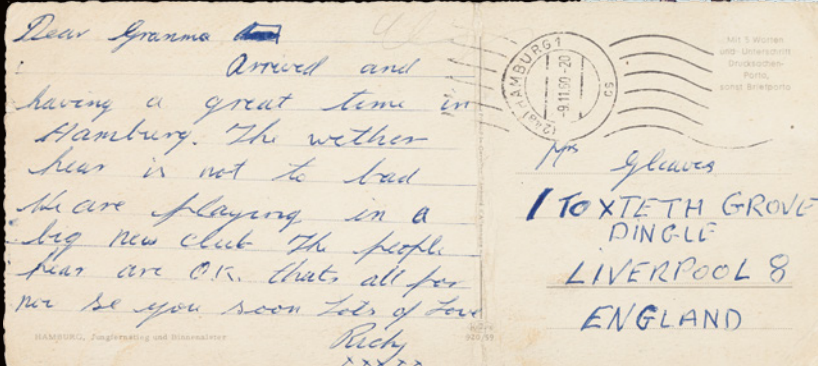 Dear Granma
Arrived and
having a great time in
Hamburg. The wether
hear is not to bad
We are playing in a
big new club The people
hear are O.K. thats all for
now se you soon Lots of Love
Richy
xxxxx
HAMBURG, Jungfernstieg und Binnenalster
HAMBURG 1
-9.11.60-20
Mit 5 Worten
und Unterschrift
Drucksachen-
Porto,
sonst Briefporto
Mrs Gleaves
1 TOXTETH GROVE
DINGLE
LIVERPOOL 8
ENGLAND